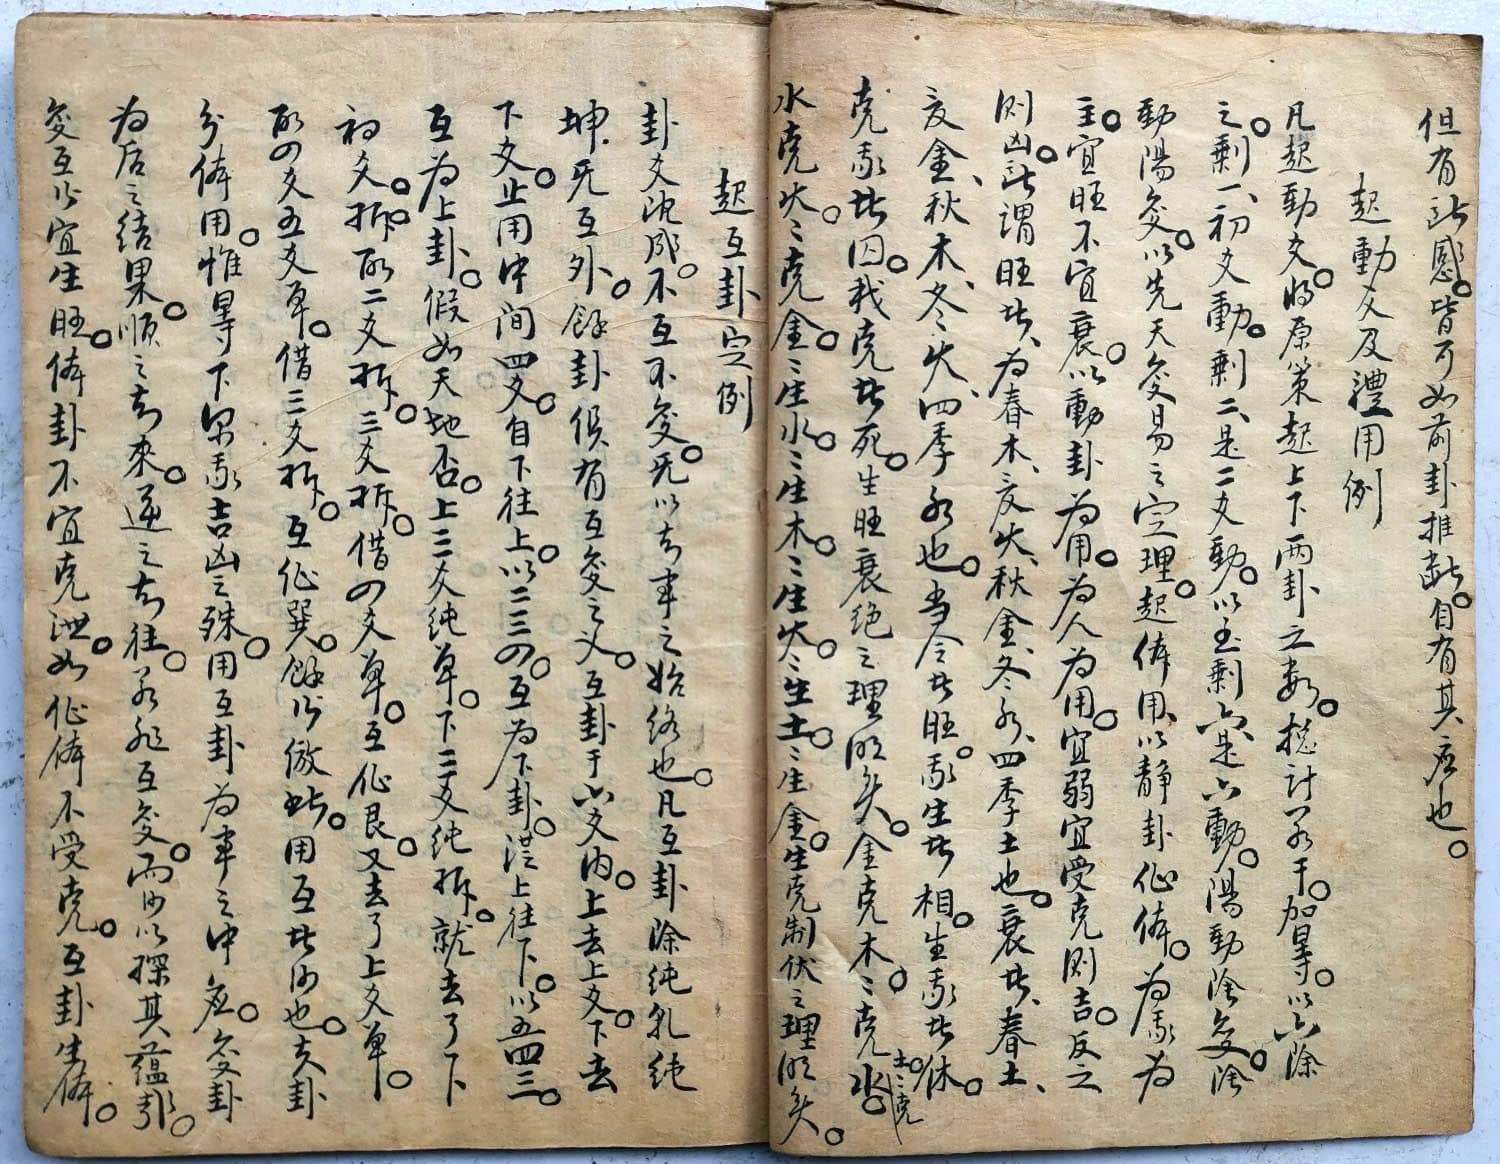 但有所感。皆可如前卦推斷。自有其应也。
起動爻及禮用例
凡起動爻。将原策起上下两卦之数。捴計若干。加時。以六除
之。剩一、初爻動。剩二、是二爻動。以至剩六是六動。陽動陰变。陰
動陽变。以先天变易之定理。起体用、以静卦作体。为我为
主。宜旺不宜衰。以動卦为用。为人为用。宜弱宜受克则吉。反之
则凶。所謂旺者、为春木、夏火、秋金、冬水、四季土也。衰者、春土、
夏金、秋木、冬火、四季水也。当令者旺。我生者相。生我者休。
克我者囚。我克者死。生旺衰绝之理明矣。金克木。〻克土。〻克水。
水克火。〻克金。〻生水。〻生木。〻生火。〻生土。〻生金。生克制伏之理明矣。
起互卦定例
卦爻既成。不互不变。无以知事之始终也。凡互卦除纯乳纯
坤。无互外。餘卦俱有互变之义。互卦于六爻内。上去上爻。下去
下爻。止用中间四爻。自下往上。以二三四。互为下卦。從上往下。以五四三。
互为上卦。假如天地否。上三爻纯单。下三爻纯拆。就去了下
初爻。拆。取二爻拆。三爻拆。借四爻单。互作艮。又去了上爻单。
取四爻五爻单。借三爻拆。互作巽。餘皆倣此。用互者何也。夫卦
分体用。惟寻下界我吉凶之殊。用互卦为事之中应。变卦
为后之结果。順之知来。逆之知往。若非互变。而何以探其蕴引。
变互皆宜生旺。体卦不宜克洩。如作体不受克。互卦生体。